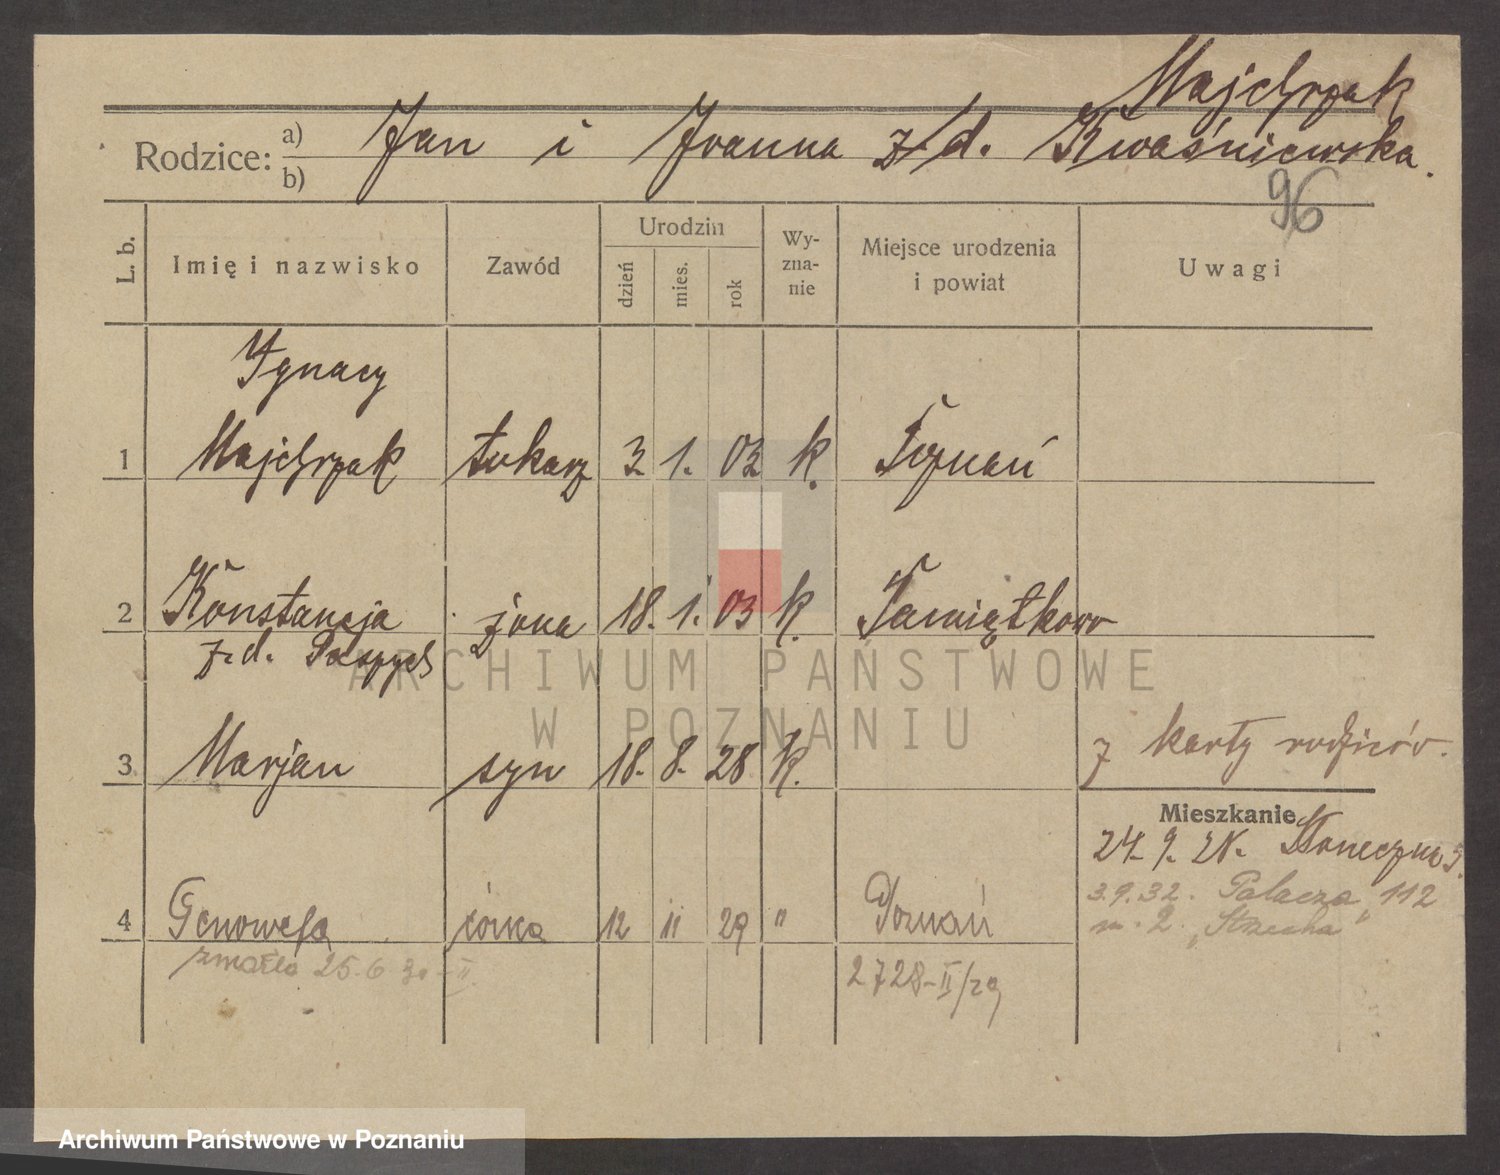 Majchrzak
Rodzice: a) b) Jan i Joanna z/d. Kwaśniewska.
96
L. b.
Imię i nazwisko
Zawód
Urodzin
dzień
mies.
rok
Wy-
zna-
nie
Miejsce urodzenia
i powiat
Uwagi
Ignacy
1 Majchrzak tokarz 3 1. 03 k. Poznań
2 Konstancja żona 18. 1. 03 k. Pamiątkowo
z.d.
3 Marjan syn 18. 8. 28 k. z karty rodziców.
Mieszkanie
24. 9. 28. Słoneczna 3.
3.9.32. Palacza 112
m. 2. „Strzecha"
4 Genowefa córka 12 11 29 " Poznań
zmarła 25.6.30-II
2728-II/29
ARCHIWUM PAŃSTWOWE
W POZNANIU
Archiwum Państwowe w Poznaniu